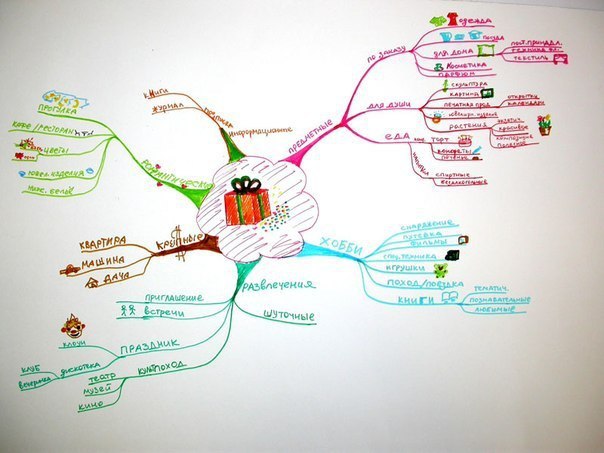 ПРЕДМЕТНЫЕ
по заказу
одежда
посуда
для дома
текстиль
косметика
парфюм
для души
скульптура
картина
печатная прод.
открытки
календари
ювелир. изделия
растения
красивое
полезное
еда
торт
конфеты
печенье
напитки
спиртные
безалкогольные
ХОББИ
снаряжение
путевка
фильмы
спец. техника
игрушки
поход/поездка
книги
тематич.
познавательные
любимые
РАЗВЛЕЧЕНИЯ
шуточные
приглашение
встречи
ПРАЗДНИК
клоун
дискотека
клуб
вечеринка
культпоход
театр
музей
кино
КРУПНЫЕ
квартира
машина
дача
РОМАНТИЧЕСКИЕ
прогулка
кафе/ресторан
цветы
ювел. изделия
ниж. бельё
информационные
книги
журнал